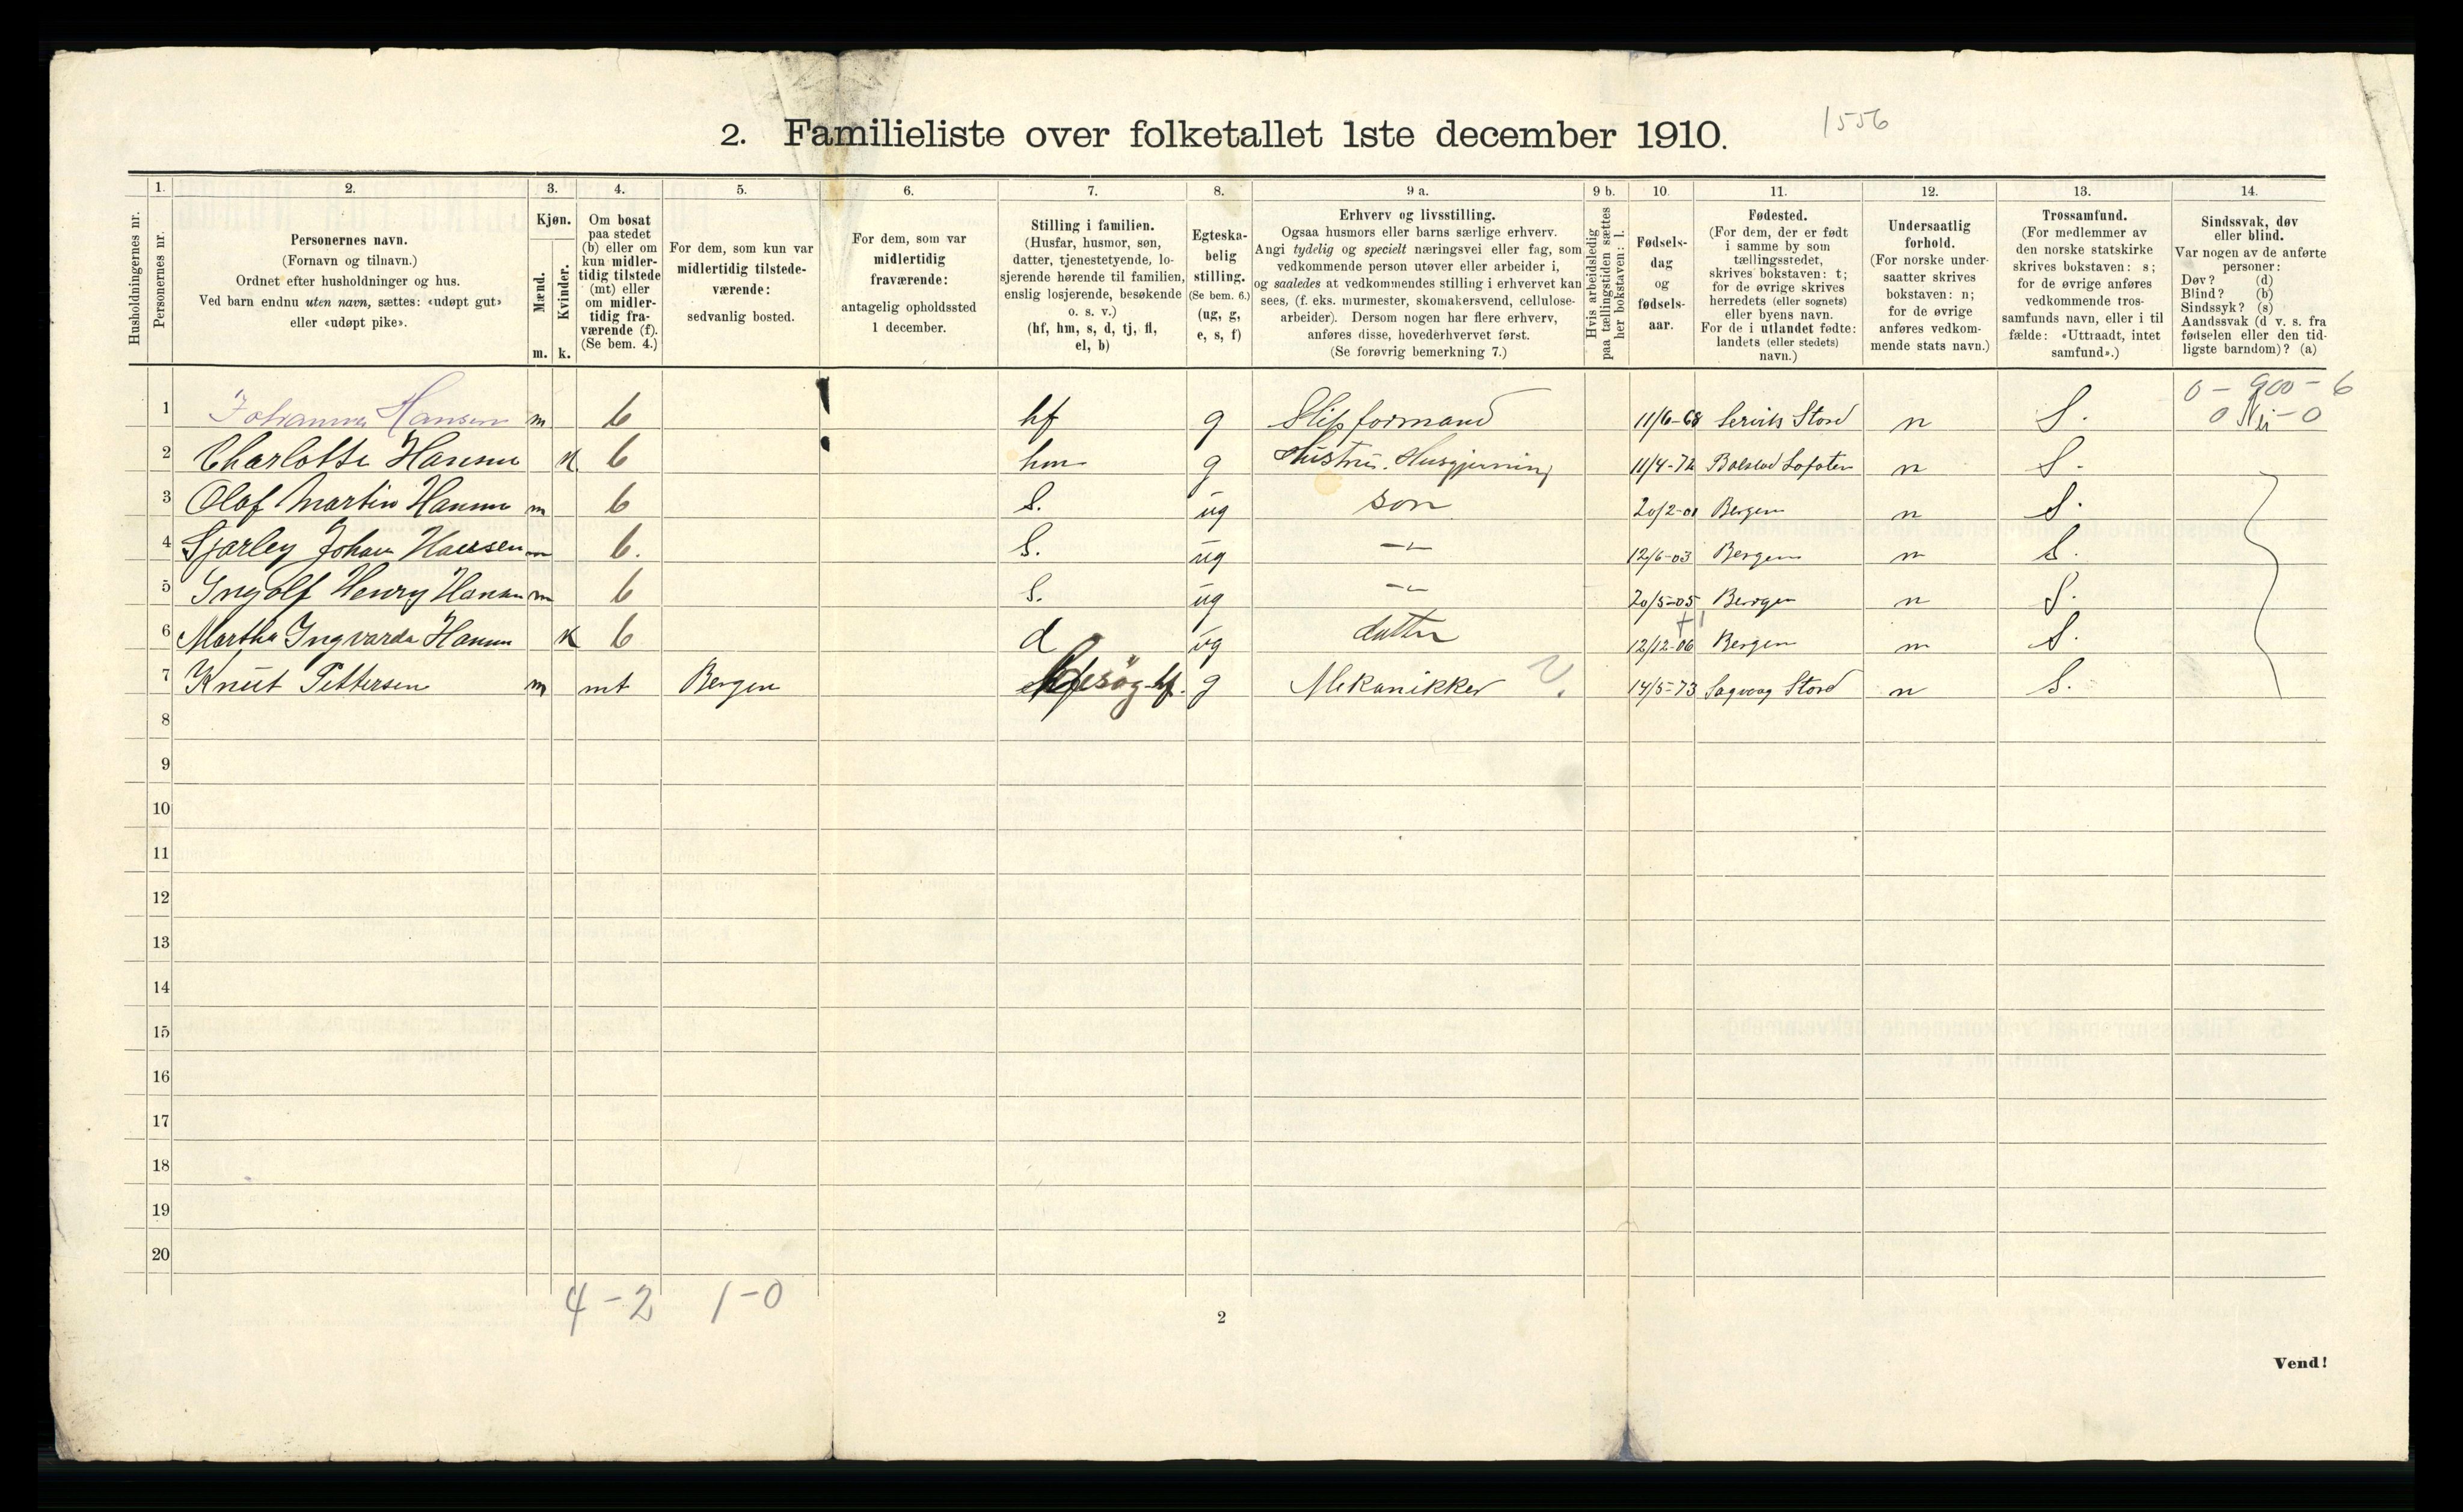 2. Familieliste over folketallet 1ste december 1910.
1556
Husholdningernes nr.
1.
Personernes nr.
2.
Personernes navn.
(Fornavn og tilnavn.)
Ordnet efter husholdninger og hus.
Ved barn endnu uten navn, sættes: «udøpt gut»
eller «udøpt pike».
3.
Kjøn.
Mænd.
Kvinder.
m. k.
4.
Om bosat
paa stedet
(b) eller om
kun midler-
tidig tilstede
(mt) eller
om midler-
tidig fra-
værende (f).
(Se bem. 4.)
5.
For dem, som kun var
midlertidig tilstede-
værende:
sedvanlig bosted.
6.
For dem, som var
midlertidig
fraværende:
antagelig opholdssted
1 december.
7.
Stilling i familien.
(Husfar, husmor, søn,
datter, tjenestetyende, lo-
sjerende hørende til familien,
enslig losjerende, besøkende
o. s. v.)
(hf, hm, s, d, tj, fl,
el, b)
8.
Egteska-
belig
stilling.
(Se bem. 6.)
(ug, g,
e, s, f)
9 a.
Erhverv og livsstilling.
Ogsaa husmors eller barns særlige erhverv.
Angi tydelig og specielt næringsvei eller fag, som
vedkommende person utøver eller arbeider i,
og saaledes at vedkommendes stilling i erhvervet kan
sees, (f. eks. murmester, skomakersvend, cellulose-
arbeider). Dersom nogen har flere erhverv,
anføres disse, hovederhvervet først.
(Se forøvrig bemerkning 7.)
9 b.
Hvis arbeidsledig
paa tællingstiden sættes
her bokstaven: l.
10.
Fødsels-
dag
og
fødsels-
aar.
11.
Fødested.
(For dem, der er født
i samme by som
tællingsstedet,
skrives bokstaven: t;
for de øvrige skrives
herredets (eller sognets)
eller byens navn.
For de i utlandet fødte:
landets (eller stedets)
navn.)
12.
Undersaatlig
forhold.
(For norske under-
saatter skrives
bokstaven: n;
for de øvrige
anføres vedkom-
mende stats navn.)
13.
Trossamfund.
(For medlemmer av
den norske statskirke
skrives bokstaven: s;
for de øvrige anføres
vedkommende tros-
samfunds navn, eller i til
fælde: «Uttraadt, intet
samfund».)
14.
Sindssvak, døv
eller blind.
Var nogen av de anførte
personer:
Døv? (d)
Blind? (b)
Sindssyk? (s)
Aandssvak (d v. s. fra
fødselen eller den tid-
ligste barndom)? (a)
0 - 900 - 6
1 Hansen m b hf g Slipformand 11/6-68 Stord n S. 0 Nei - 0
2 Charlotte Hansen k b hm g Hustru. Husgjerning 11/4-72 Balstad Lofoten n S.
3 Olaf Martin Hansen m b S. ug son 20/2-01 Bergen n S.
4 Sjarley Johan Hansen m b. S. ug -"- 12/6-03 Bergen n S.
5 Ingolf Henry Hansen m b S. ug -"- 20/5-05 Bergen n S.
6 Martha Ingvarda Hansen k b d ug datter 12/12-06 Bergen n S.
7 Knut Pettersen m mt Bergen Besøg hf. g Mekanikker 14/5-73 Sagvaag Stord n S.
8
9
10
11
12
13
14
15
16
17
18
19
20
4 - 2 1 - 0
2
Vend!